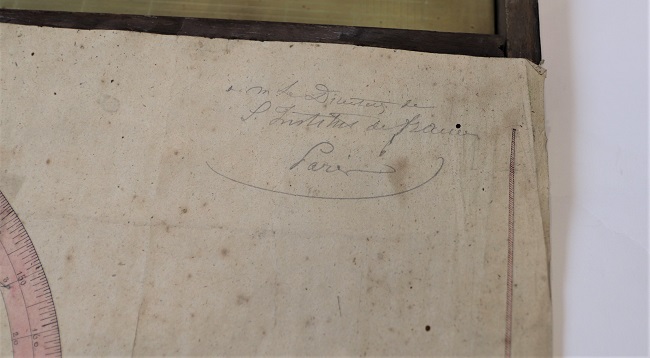 a m Le Directeur de
L Institut de france
Paris
150
160